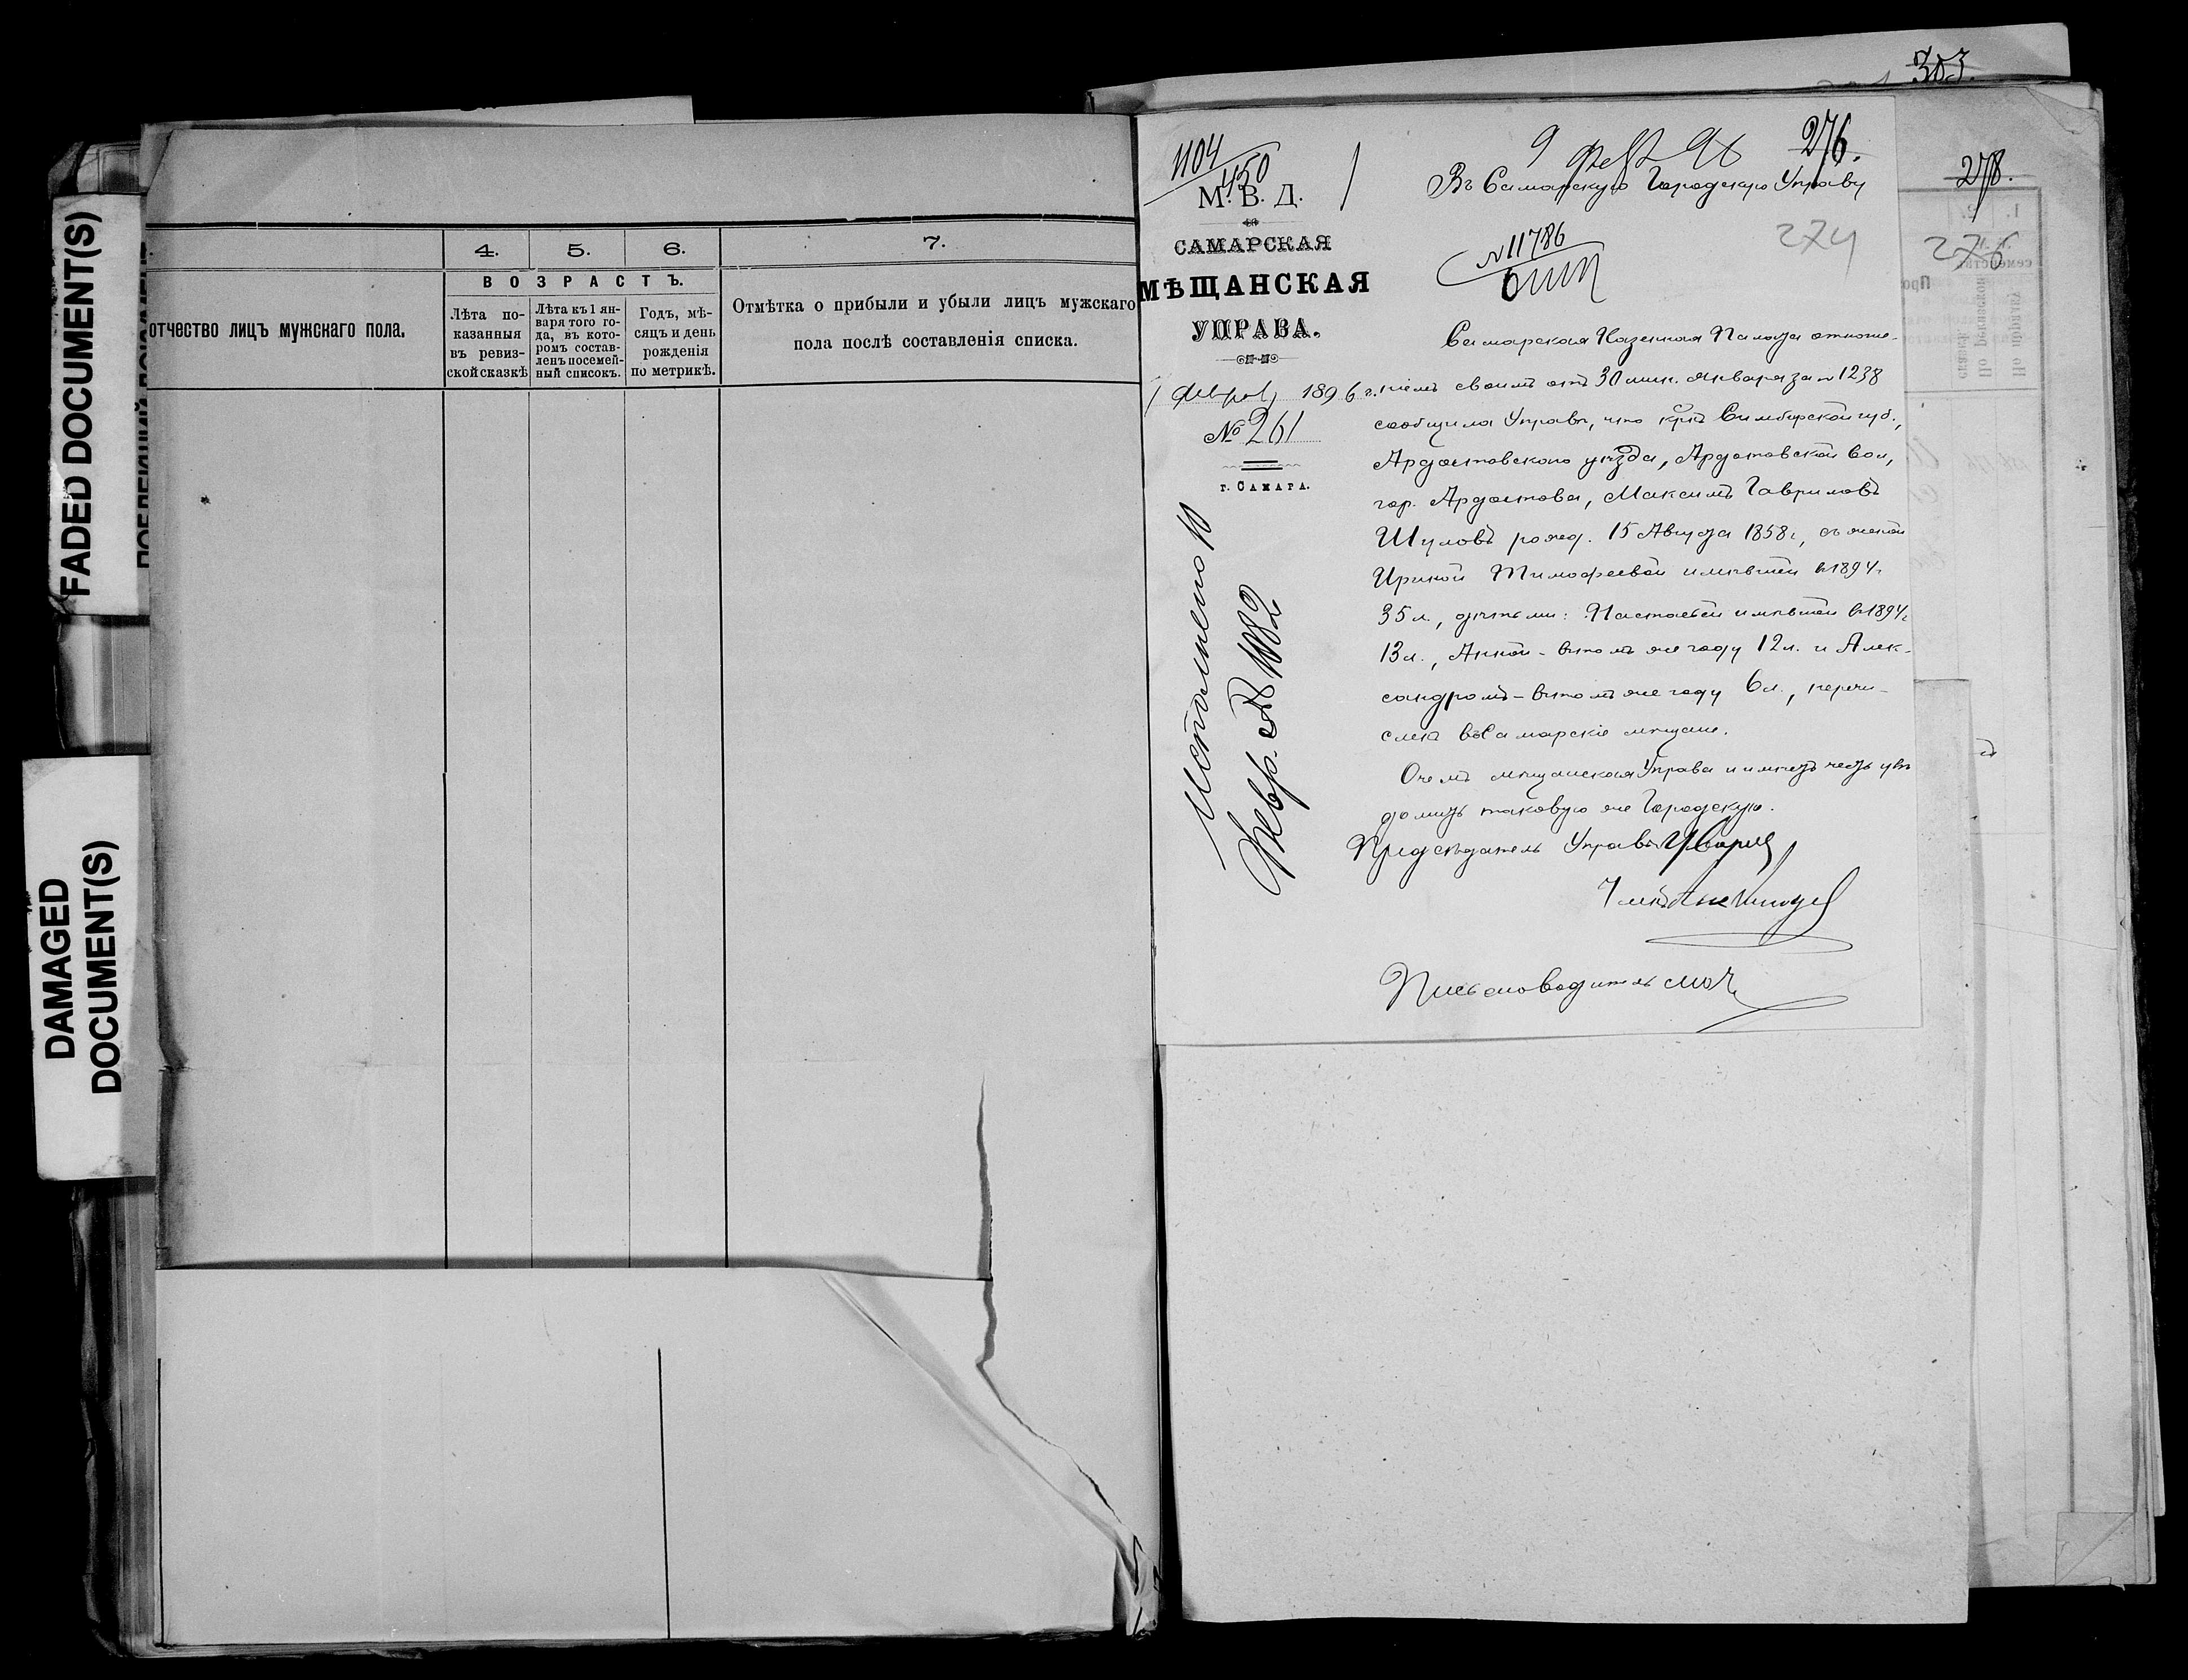 FADED DOCUMENT(S)
DAMAGED
DOCUMENT(S)
4. 5. 6. 7.
ВОЗРАСТЪ.
отчество лицъ мужскаго пола.
Лѣта по-
казанныя
въ ревиз-
ской сказкѣ
Лѣта къ 1 ян-
варя того го-
да, въ кото-
ромъ состав-
ленъ посемей-
ный списокъ.
Годъ, мѣ-
сяцъ и день
рожденія
по метрикѣ.
Отмѣтка о прибыли и убыли лицъ мужскаго
пола послѣ составленія списка.
303.
278.
276
1104
450
М. В. Д.
САМАРСКАЯ
МѢЩАНСКАЯ
УПРАВА.
1 1896 г.
№ 261
г. САМАРА.
Исполнено 10
Февр. № 1082
9 фев 96
276.
Въ Самарскую Городскую Управу
274
№ 11786
Самарская Казенная Палата отноше-
ніемъ своимъ отъ 30 мин. Января за № 1238
сообщила Управѣ, что кр. Симбирской губ.,
Ардатовскаго уѣзда, Ардатовской вол,
гор. Ардатова, Максимъ Гавриловъ
Шуловъ рожд. 15 Августа 1858 г, съ женой
Ириной Тимофеевой имѣвшей въ 1894 г
35 л., дѣтьми: Настасьей имѣвшей въ 1894 г.
13 л., Анной - въ томъ же году 12 л. и Алек-
сандромъ - въ томъ же году 6 л., перечи-
слен въ Самарскіе мѣщане.
О чемъ мѣщанская Управа и имѣетъ честь увѣ
домить таковую же Городскую.
Предсѣдатель Управы
Членъ
Письмоводитель